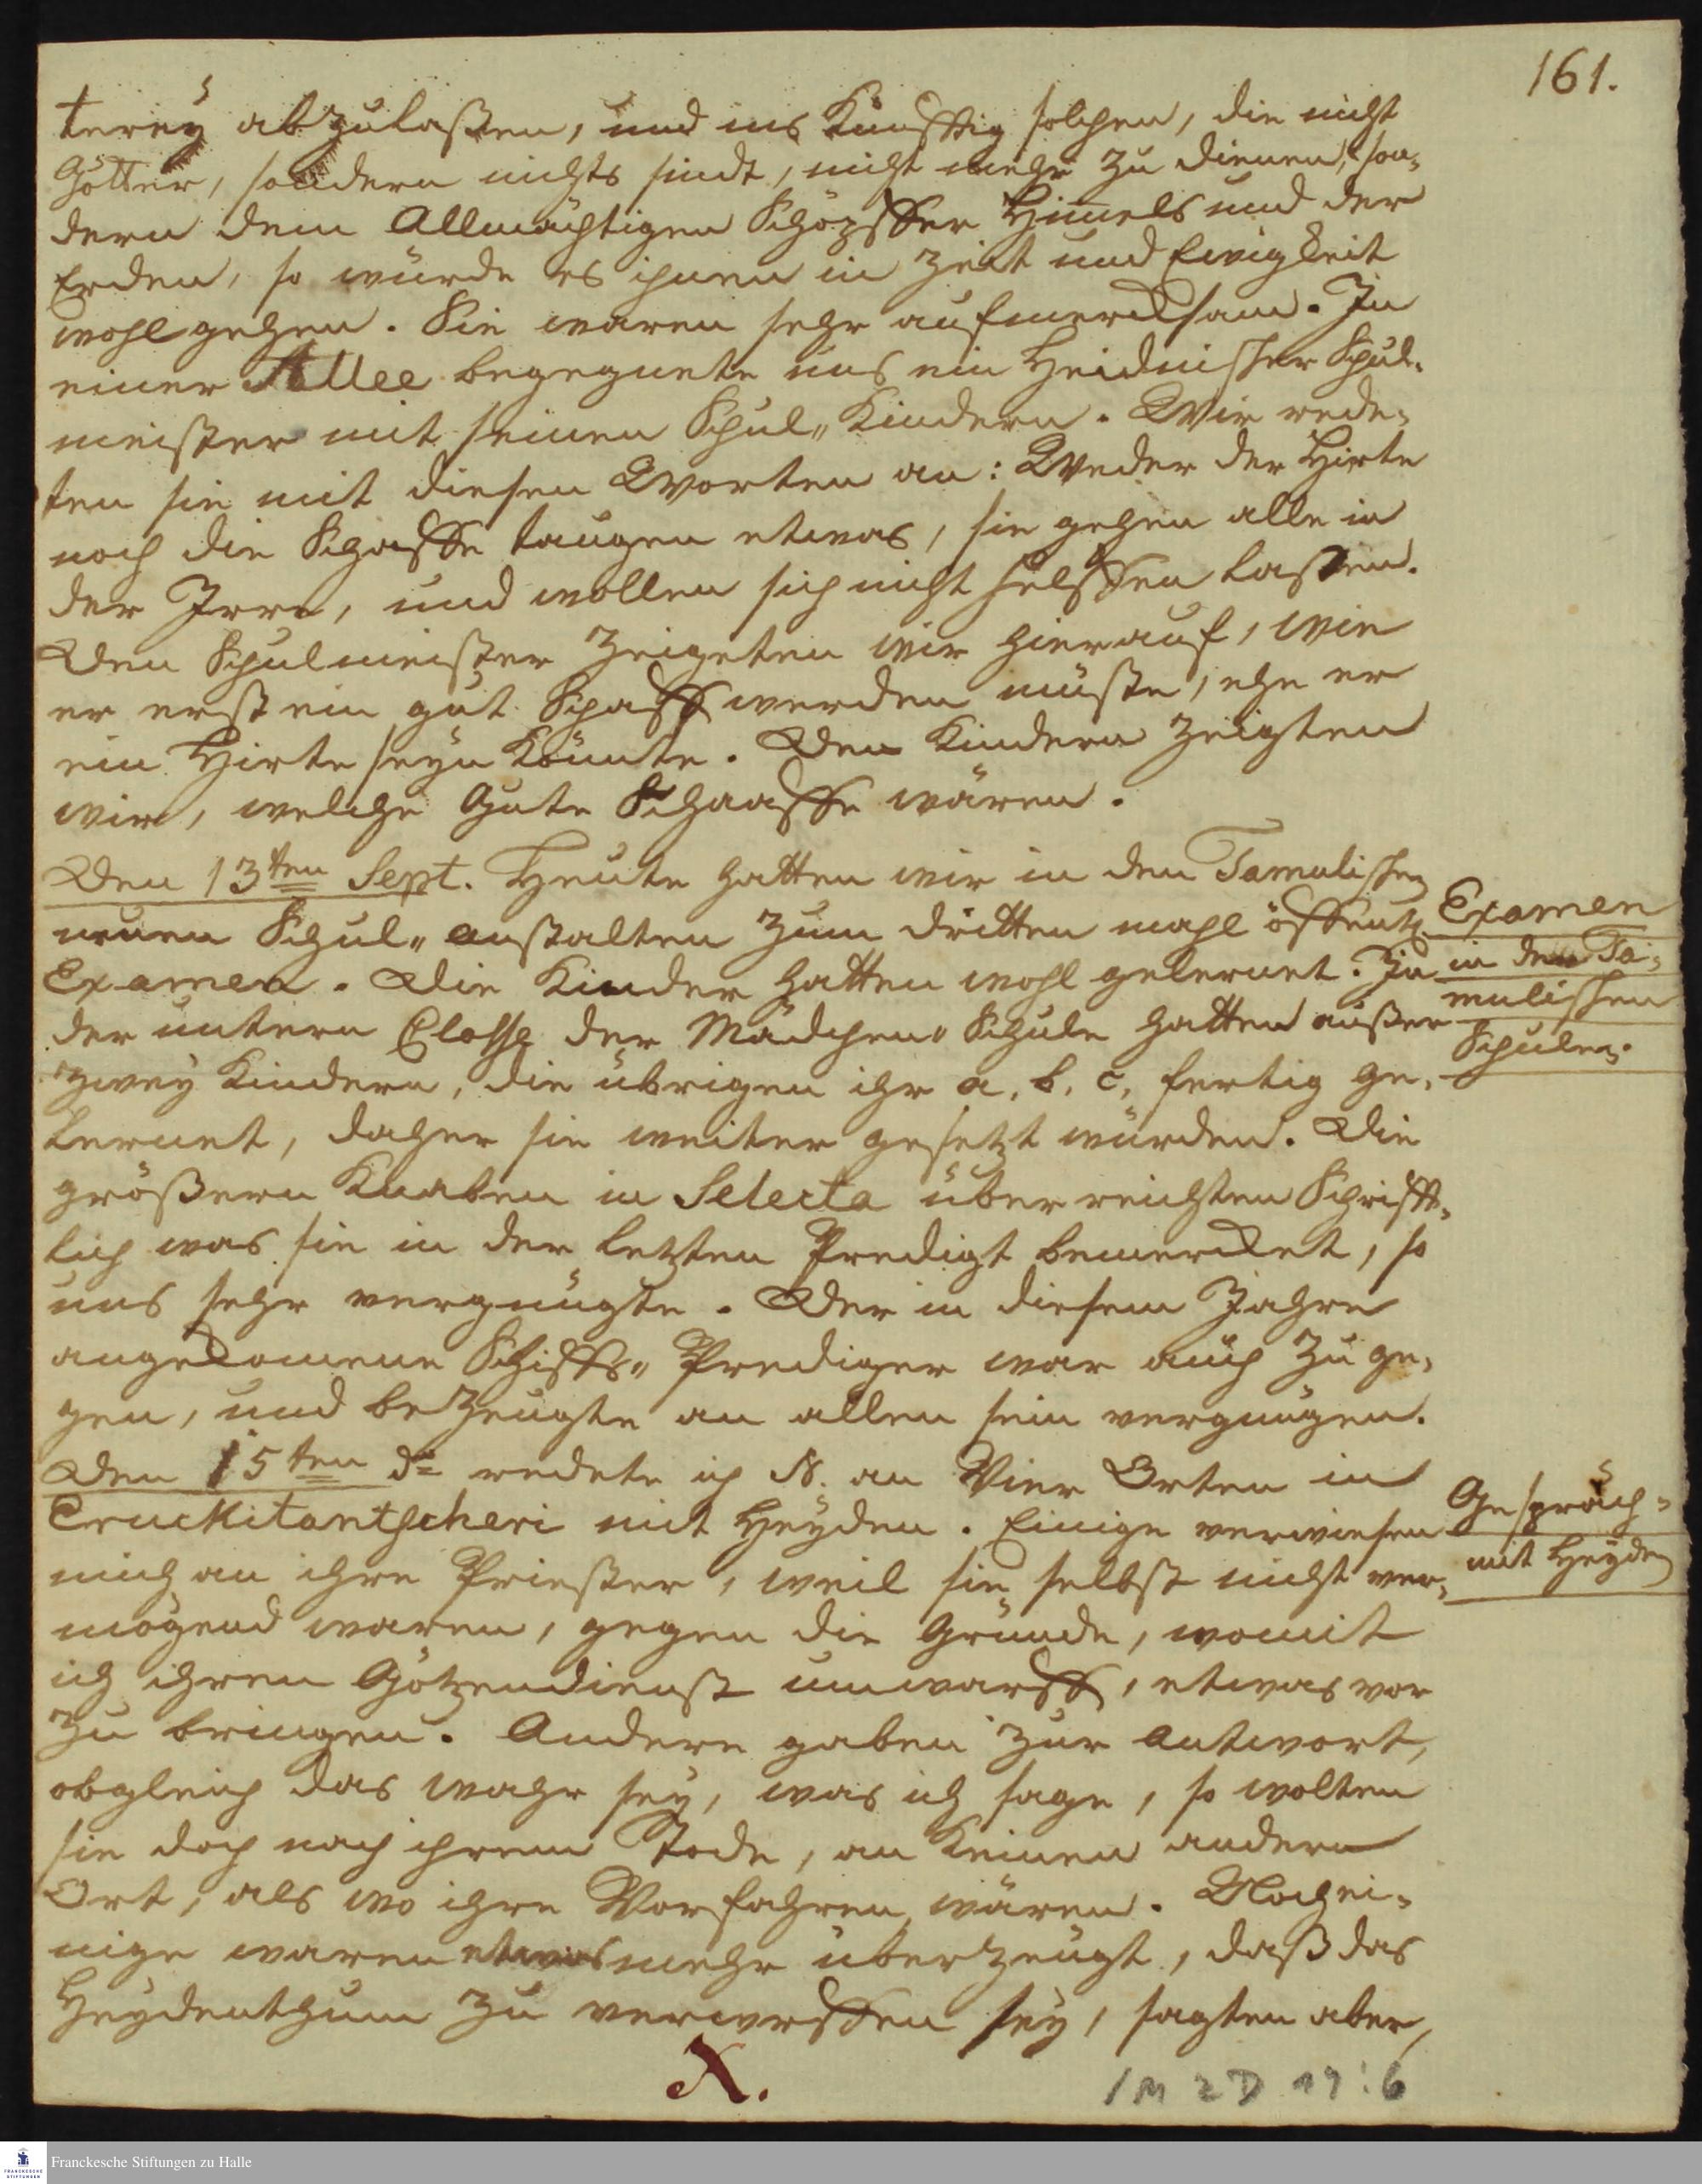 161.
terey abzulaßen, und ins Künfftig solchen, die nicht
Götter, sondern nichts sindt, nicht mehr zu dienen, son„
dern dem Allmächtigen Schöpffer Himels und der
Erden, so würde es ihnen in Zeit und Ewigkeit
wohlgehen. Sie waren sehr aufmercksam. In
einer Allee begegnete uns ein Heidnischer Schul„
meister mit seinen Schul„ Kindern. Wir rede„
ten sie mit diesen Worten an: Weder der Hirte
noch die Schaffe taugen etwas, sie gehen alle in
der Irre, und wollen sich nicht helffen laßen.
Den Schulmeister Zeigeten wir hierauf, wie
er erst ein gut Schaff werden müste, ehe er
ein Hirte seyn Könnte. Den Kindern Zeigten
wir, welche Gute Schaaffe wären.
Den 13ten Sept. Heute hatten wir in den Tamulischen
neuen Schul„ anstalten Zum dritten mahl öffentl.
Examen. Die Kinder hatten wohl gelernet. In
der untern Classe der Mädchen„ Schule hatten außer
zwey Kindern, die übrigen ihr a, b, c, fertig ge„
lernet, daher sie weiter gesetzt würden. Die
größern Knaben in Selecta über reichten Schrifft„
lich was sie in der letzten Predigt bemercket, so
uns sehr vergnügte. Der in diesem Jahre
angekomene Schiffs„ Prediger war auch Zu ge„
gen, und beZeugte an allen sein vergnügen.
Examen
in den Ta„
mulischen
Schulen.
Den 15ten do redete ich N. an Vier Orten in
Cruckitantscheri mit Heyden. Einige verwiesen
mich an ihre Priester, weil sie selbst nicht ver„
mögend waren, gegen die Gründe, womit
ich ihren Götzendienst umwarff, etwas vor
Zu bringen. Andere gaben zur Antwort,
obgleich das wahr sey, was ich sage, so wolten
sie doch nach ihrem Tode, an Keinen andern
Ort, als wo ihre Vorfahren wären. Noch ei„
nige waren etwas mehr überzeugt, daß das
Heydenthum Zu verwerffen sey, sagten aber,
Gespräch
mit Heyden
X.
1 M 2 D 17 : 6
FRANCKESCHE STIFTUNGEN
Franckesche Stiftungen zu Halle